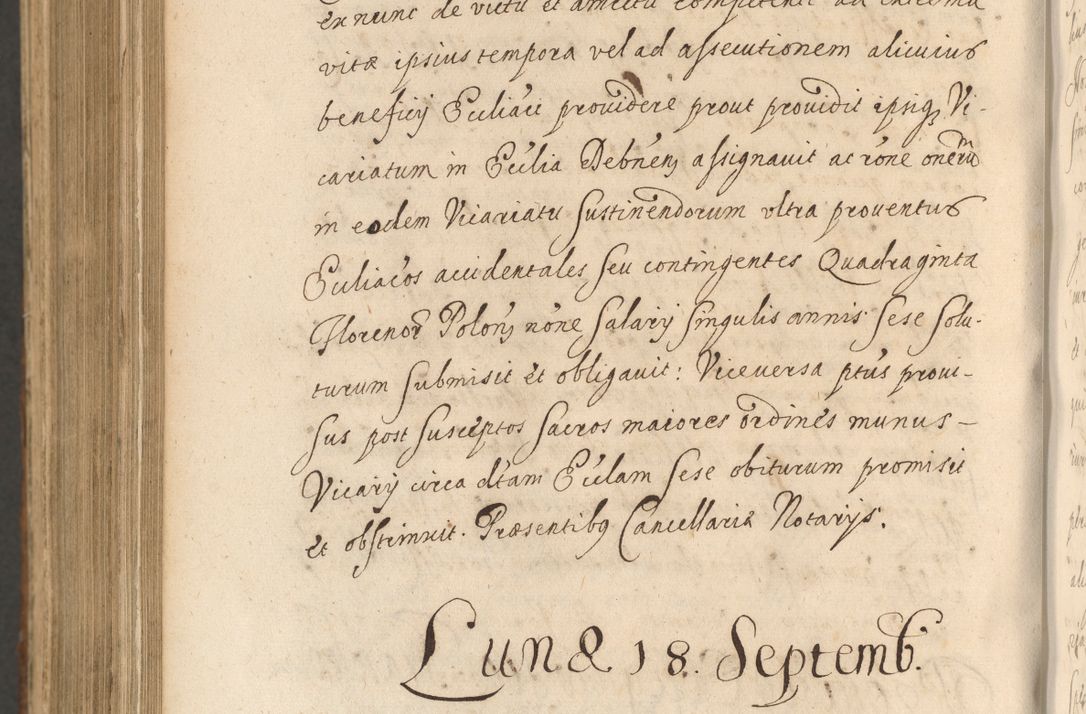 ex nunc de victu et amictu competenti ad extrema
vitæ ipsius tempora vel ad assecutionem alicuius
beneficij Eccliaci providere prout providit ipsiq₃ Vi-
cariatum in Ecclia Debnen₃ assignavit ac rõne onerũ
in eodem Vicariatu sustinendorum ultra proventus
Eccliacos accidentales seu contingentes Quadraginta
Florenoꝝ Polon₃ nõne salarij singulis annis sese solu-
turum submisit et obligavit: Viceversa ptus provi-
sus post susceptos sacros maiores ordines munus –
Vicarij circa dtam Ecclam sese obiturum promisit
et obstrinxit. Præsentibq Cancellariæ Notarijs.
Lunæ 18. Septemb.